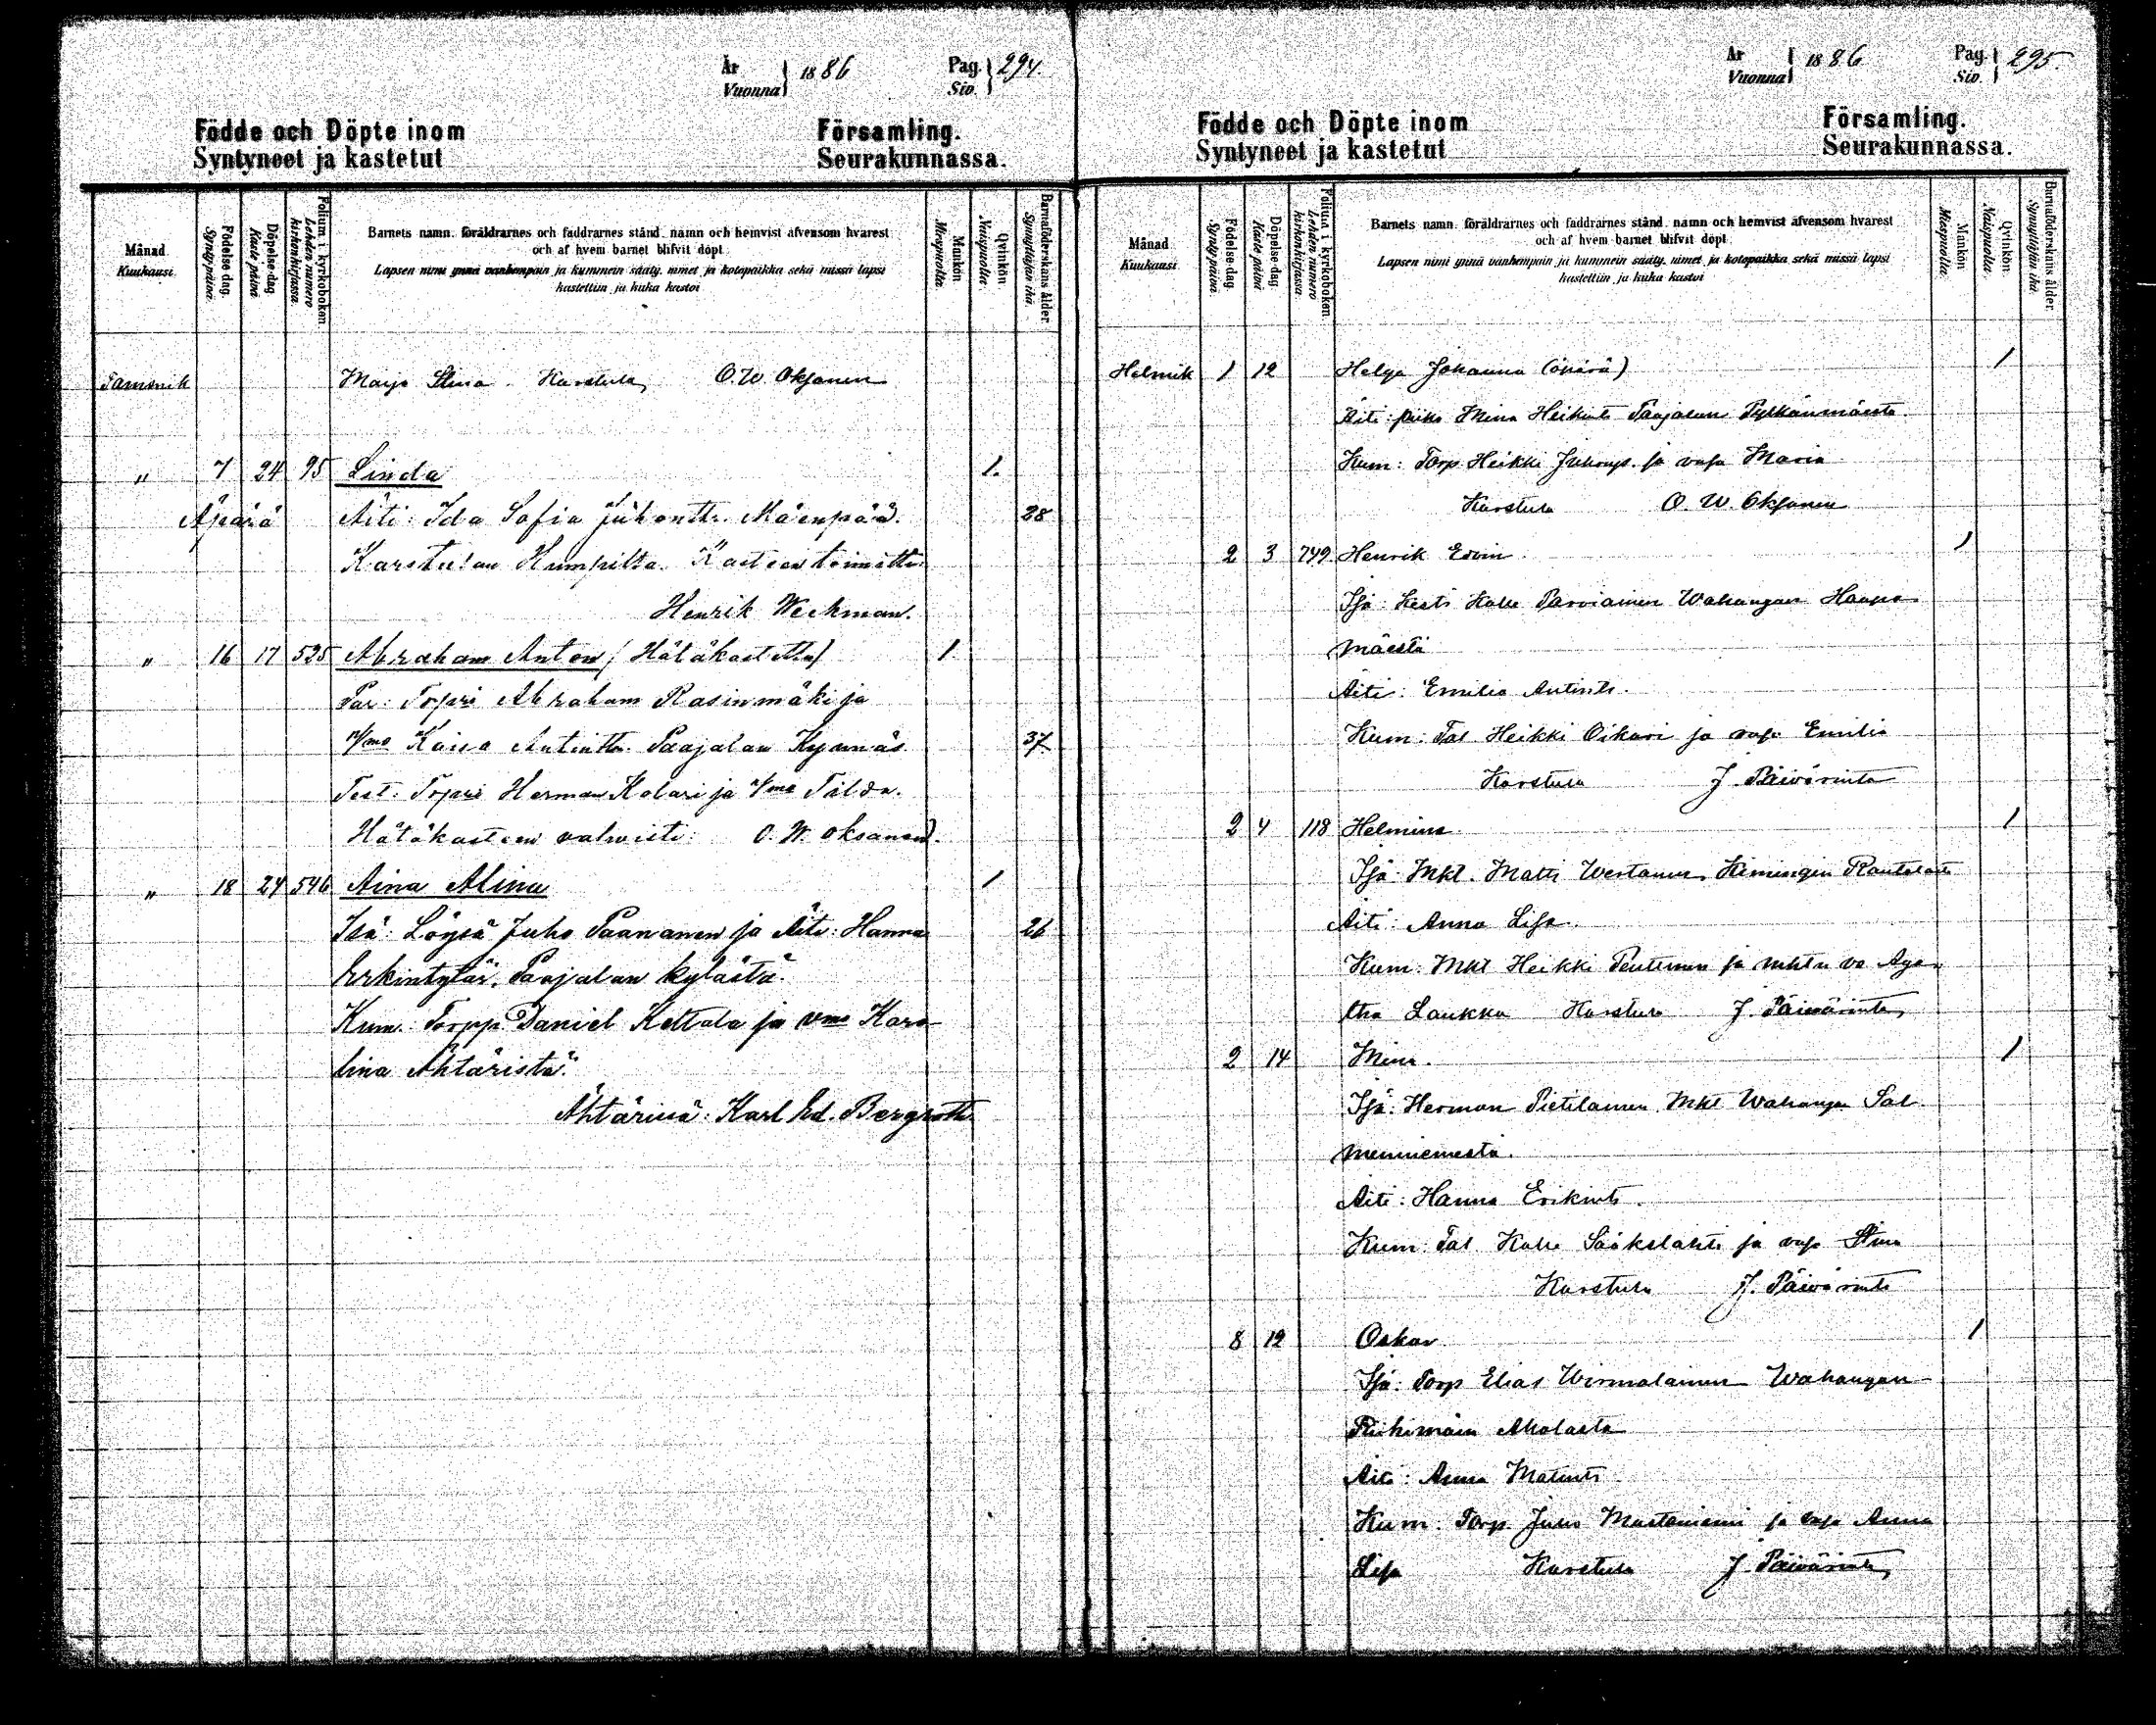 År Vuonna 1886 Pag. Siv. 294.
Födde och Döpte inom Församling.
Syntyneet ja kastetut Seurakunnassa.
Månad Kuukausi
Födelse dag. Synty-päivä.
Döpelse-dag Kaste päivä
Folium i kyrkoboken. Lehden numero kirkonkirjassa.
Barnets namn, föräldrarnes och faddrarnes stånd, namn och hemvist äfvensom hvarest
och af hvem barnet blifvit döpt.
Lapsen nimi ynnä vanhempain ja kummein sääty, nimet ja kotopaikka sekä missä lapsi
kastettiin ja kuka kastoi
Mankön Miespuolta
Qvinkön Naispuolta.
Barnaföderskans ålder Synnyttäjän ikä.
Tammik Maija Stina. Karstula, O. W. Oksanen
" 7 24 95 Linda 1.
Äpärä Äiti: Ida Sofia Juhontr. Mäenpää. 28
Karstulan Humpilta. Kasteen toimitti
Henrik Weckman.
" 16 17 525 Abraham Anton (Hätäkastettu) 1.
Var: Torpri Abraham Rasinmäki ja
v/mo Kaisa Antintr. Paajalan Kynnäs 37
Test: Torpri Herman Kolari ja v/mo Tilda.
Hätäkasteen vahvisti: O. W. Oksanen.
" 18 24 546 Aina Alina 1
Isä: Löysä Juho Paananen ja Äiti: Hanna 26
Erkintytär, Paajalan kylästä.
Kum: Torpp Daniel Kettola ja vmo Karo-
lina Ähtäristä.
Ähtärissä: Karl Ed. Bergroth
År Vuonna 1886 Pag. Siv. 295.
Födde och Döpte inom Församling.
Syntyneet ja kastetut Seurakunnassa.
Månad Kuukausi
Födelse-dag. Synty-päivä.
Döpelse-dag. Kaste päivä
Folium i kyrkoboken. Lehden numero kirkonkirjassa.
Barnets namn, föräldrarnes och faddrarnes stånd, namn och hemvist äfvensom hvarest
och af hvem barnet blifvit döpt.
Lapsen nimi ynnä vanhempain ja kummein sääty, nimet ja kotopaikka sekä missä lapsi
kastettiin ja kuka kastoi
Mankön Miespuolta
Qvinkön Naispuolta.
Barnaföderskans ålder. Synnyttäjän ikä.
Helmik 1 12 Helga Johanna (äpärä) 1
Äiti: piika Mina Heikint Paajalan Pyrkänmäestä.
Kum: Torp Heikki Juhonp. ja vaja Maria
Karstula O. W. Oksanen
2 3 749 Henrik Edvin 1
Isä: Kesti Kalle Parviainen Wahangan Haapa-
mäestä
Äiti: Emilia Antints.
Kum: Tal Heikki Oikari ja vaja Emilia
Karstula J. Päivärinta
2 4 118 Helmina 1
Isä: Mkl. Matti Wertanen Kimingin
Äiti: Anna Lisa.
Kum: Mkl Heikki Penttinen ja Aga-
tha Laukka Karstula J. Päivärinta
2 14 Mina. 1
Isä: Herman Pietilainen Mkl Wahangan Sal-
menniemestä.
Äiti: Hanna Erikints.
Kum: Tal. Kalle Sääkslahti ja vaja Stina
Karstula J. Päivärinta
8 12 Oskar 1
Isä: Torp Elias Wirmalainen Wahangan
Riihimäen Aholasta
Äiti: Anna Matints
Kum: Torp. Juho Mustaniemi ja vaja Anna
Lisa Karstula J. Päivärinta